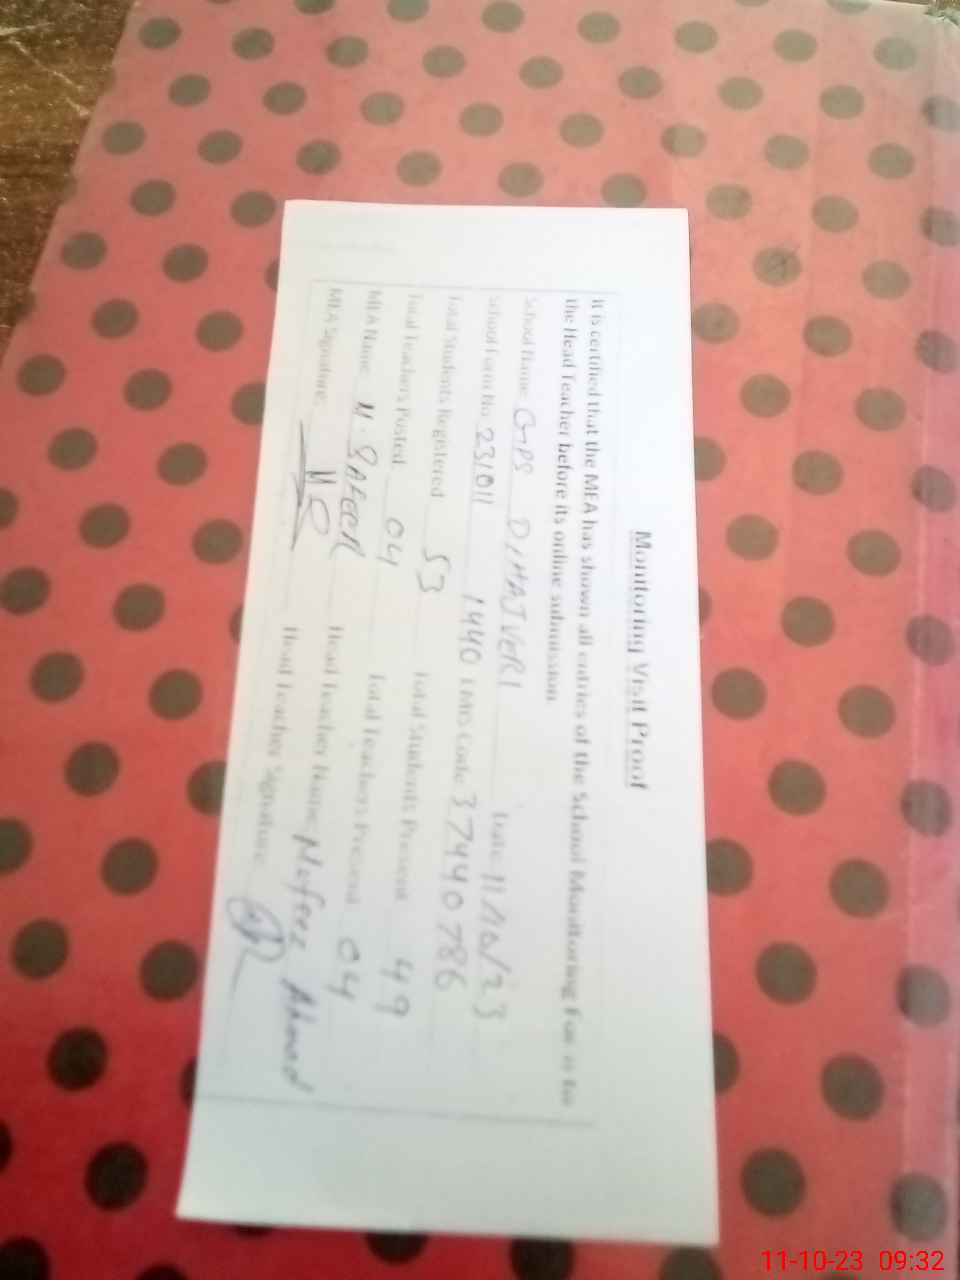 Monitoring Visit Proof
It is certified that the MEA has shown all entries of the School Monitoring Form to
the Head Teacher before its online submission
School Name GPS Date 11/10/23
School Form No. 231011 1440 EMIS Code 37440786
Total Students Registered 53 Total Students Present 49
Total Teachers Posted 04 Total Teachers Present 04
MEA Name M. Head Teacher Name Ahmad
MEA Signature Head Teacher Signature
11-10-23 09:32